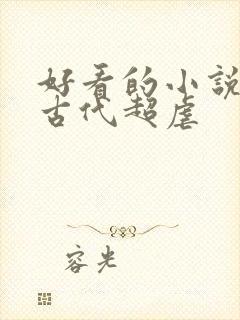 好看的小說
古代超虐
容光